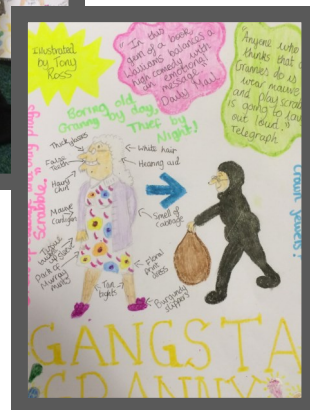 Illustrated
by Tony
Ross
"In this
gem of a book
Walliams balances
high comedy with
an emotional
message."
Daily Mail
"Anyone who
thinks that
Grannies do is
wear mauve
and play scrabble
is going to
out loud."
Telegraph
Boring old
Granny by day,
Thief by
Night!
Thick glasses
False
Teeth
Hairy
Chin
Mauve
Cardigan
Tissue
up
Pack of
Murray
Mints
Tan
tights
White hair
Hearing aid
Smell of
Cabbage
Floral
print
dress
Burgundy
slippers
Scrabble."
Crown jewels?
GANGSTA
GRANNY